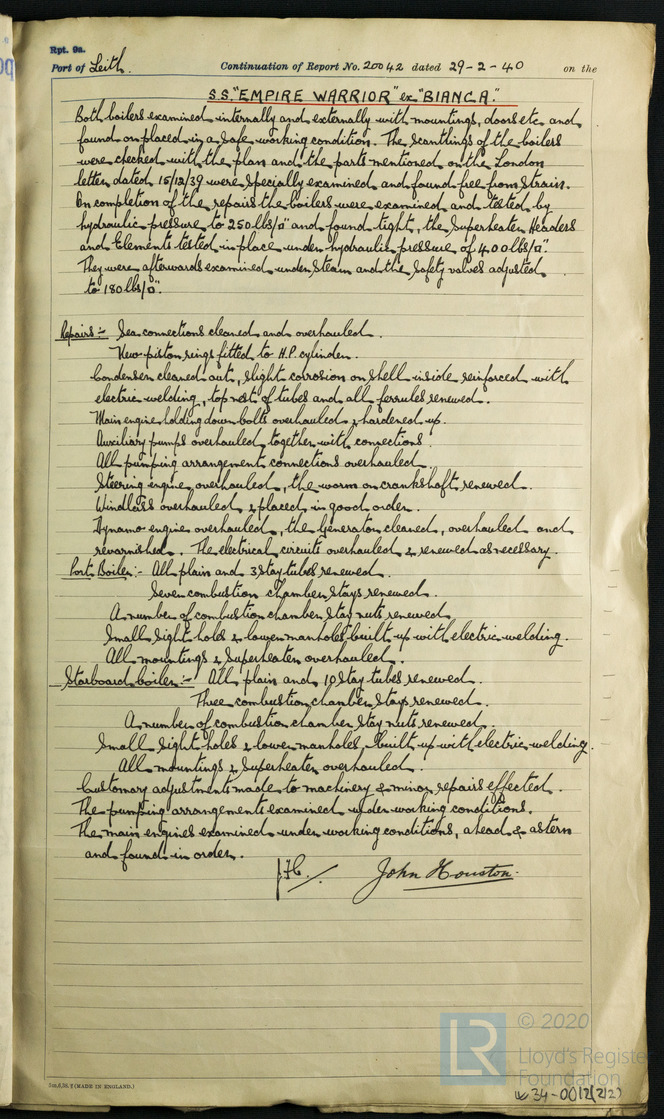 Rpt. 9a.
Port of Leith. Continuation of Report No. 20042 dated 29-2-40 on the
S.S. "EMPIRE WARRIOR" ex "BIANCA."
Both boilers examined internally and externally with mountings, doors etc and
found or placed in a safe working condition. The scantlings of the boilers
were checked with the plan and the parts mentioned on the London
letter dated 15/12/39 were specially examined and found free from strain.
On completion of the repairs the boilers were examined and tested by
hydraulic pressure to 250 lbs/□" and found tight, the Superheater Headers
and Elements tested in place under hydraulic pressure of 400 lbs/□".
They were afterwards examined under steam and the safety valves adjusted
to 180 lbs/□".
Repairs:- Sea connections cleaned and overhauled.
New piston rings fitted to H.P. cylinder.
Condenser cleaned out, slight corrosion on shell inside reinforced with
electric welding, top nest of tubes and all ferrules renewed.
Main engine holding down bolts overhauled & hardened up.
Auxiliary pumps overhauled together with connections.
All pumping arrangement connections overhauled.
Steering engine overhauled, the worm on crankshaft renewed.
Windlass overhauled & placed in good order.
Dynamo engine overhauled, the Generator cleaned, overhauled and
revarnished. The electrical circuits overhauled & renewed as necessary.
Port Boiler:- All plain and 3 stay tubes renewed.
Seven combustion chamber stays renewed.
A number of combustion chamber stay nuts renewed.
Small sight holes & lower manholes built up with electric welding.
All mountings & Superheater overhauled.
Starboard boiler:- All plain and 10 stay tubes renewed.
Three combustion chamber stays renewed.
A number of combustion chamber stay nuts renewed.
Small sight holes & lower manholes, built up with electric welding.
All mountings & Superheater overhauled.
Customary adjustments made to machinery & minor repairs effected.
The pumping arrangements examined under working conditions.
The main engines examined under working conditions, ahead & astern
and found in order.
John Houston.
© 2020
LR Lloyd's Register
Foundation
(MADE IN ENGLAND.)
34-0012(2/2)